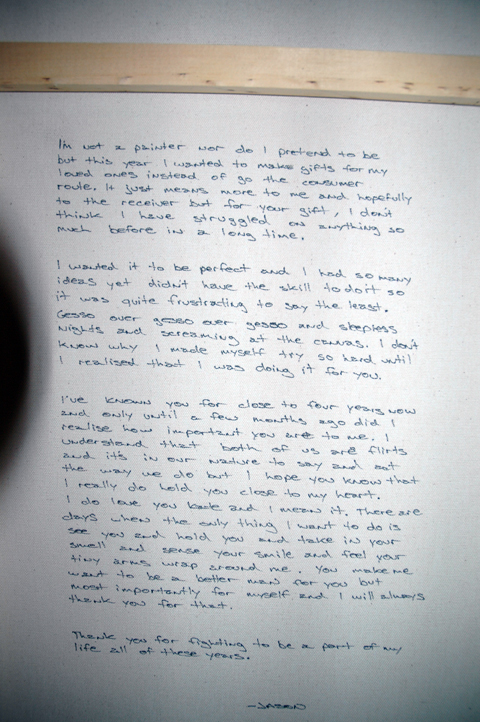 I'm not a painter nor do I pretend to be
but this year I wanted to make gifts for my
loved ones instead of go the consumer
route. It just means more to me and hopefully
to the receiver but for your gift, I don't
think I have struggled on anything so
much before in a long time.
I wanted it to be perfect and I had so many
ideas yet didn't have the skill to do it so
it was quite frustrating to say the least.
Gesso over gesso over gesso and sleepless
nights and screaming at the canvas. I don't
know why I made myself try so hard until
I realised that I was doing it for you.
I've known you for close to four years now
and only until a few months ago did I
realise how important you are to me. I
understand that both of us are flirts
and it's in our nature to say and act
the way we do but I hope you know that
I really do hold you close to my heart.
I do love you kade and I mean it. There are
days when the only thing I want to do is
see you and hold you and take in your
smell and sense your smile and feel your
tiny arms wrap around me. You make me
want to be a better man for you but
most importantly for myself and I will always
thank you for that.
Thank you for fighting to be a part of my
life all of these years.
-Jason